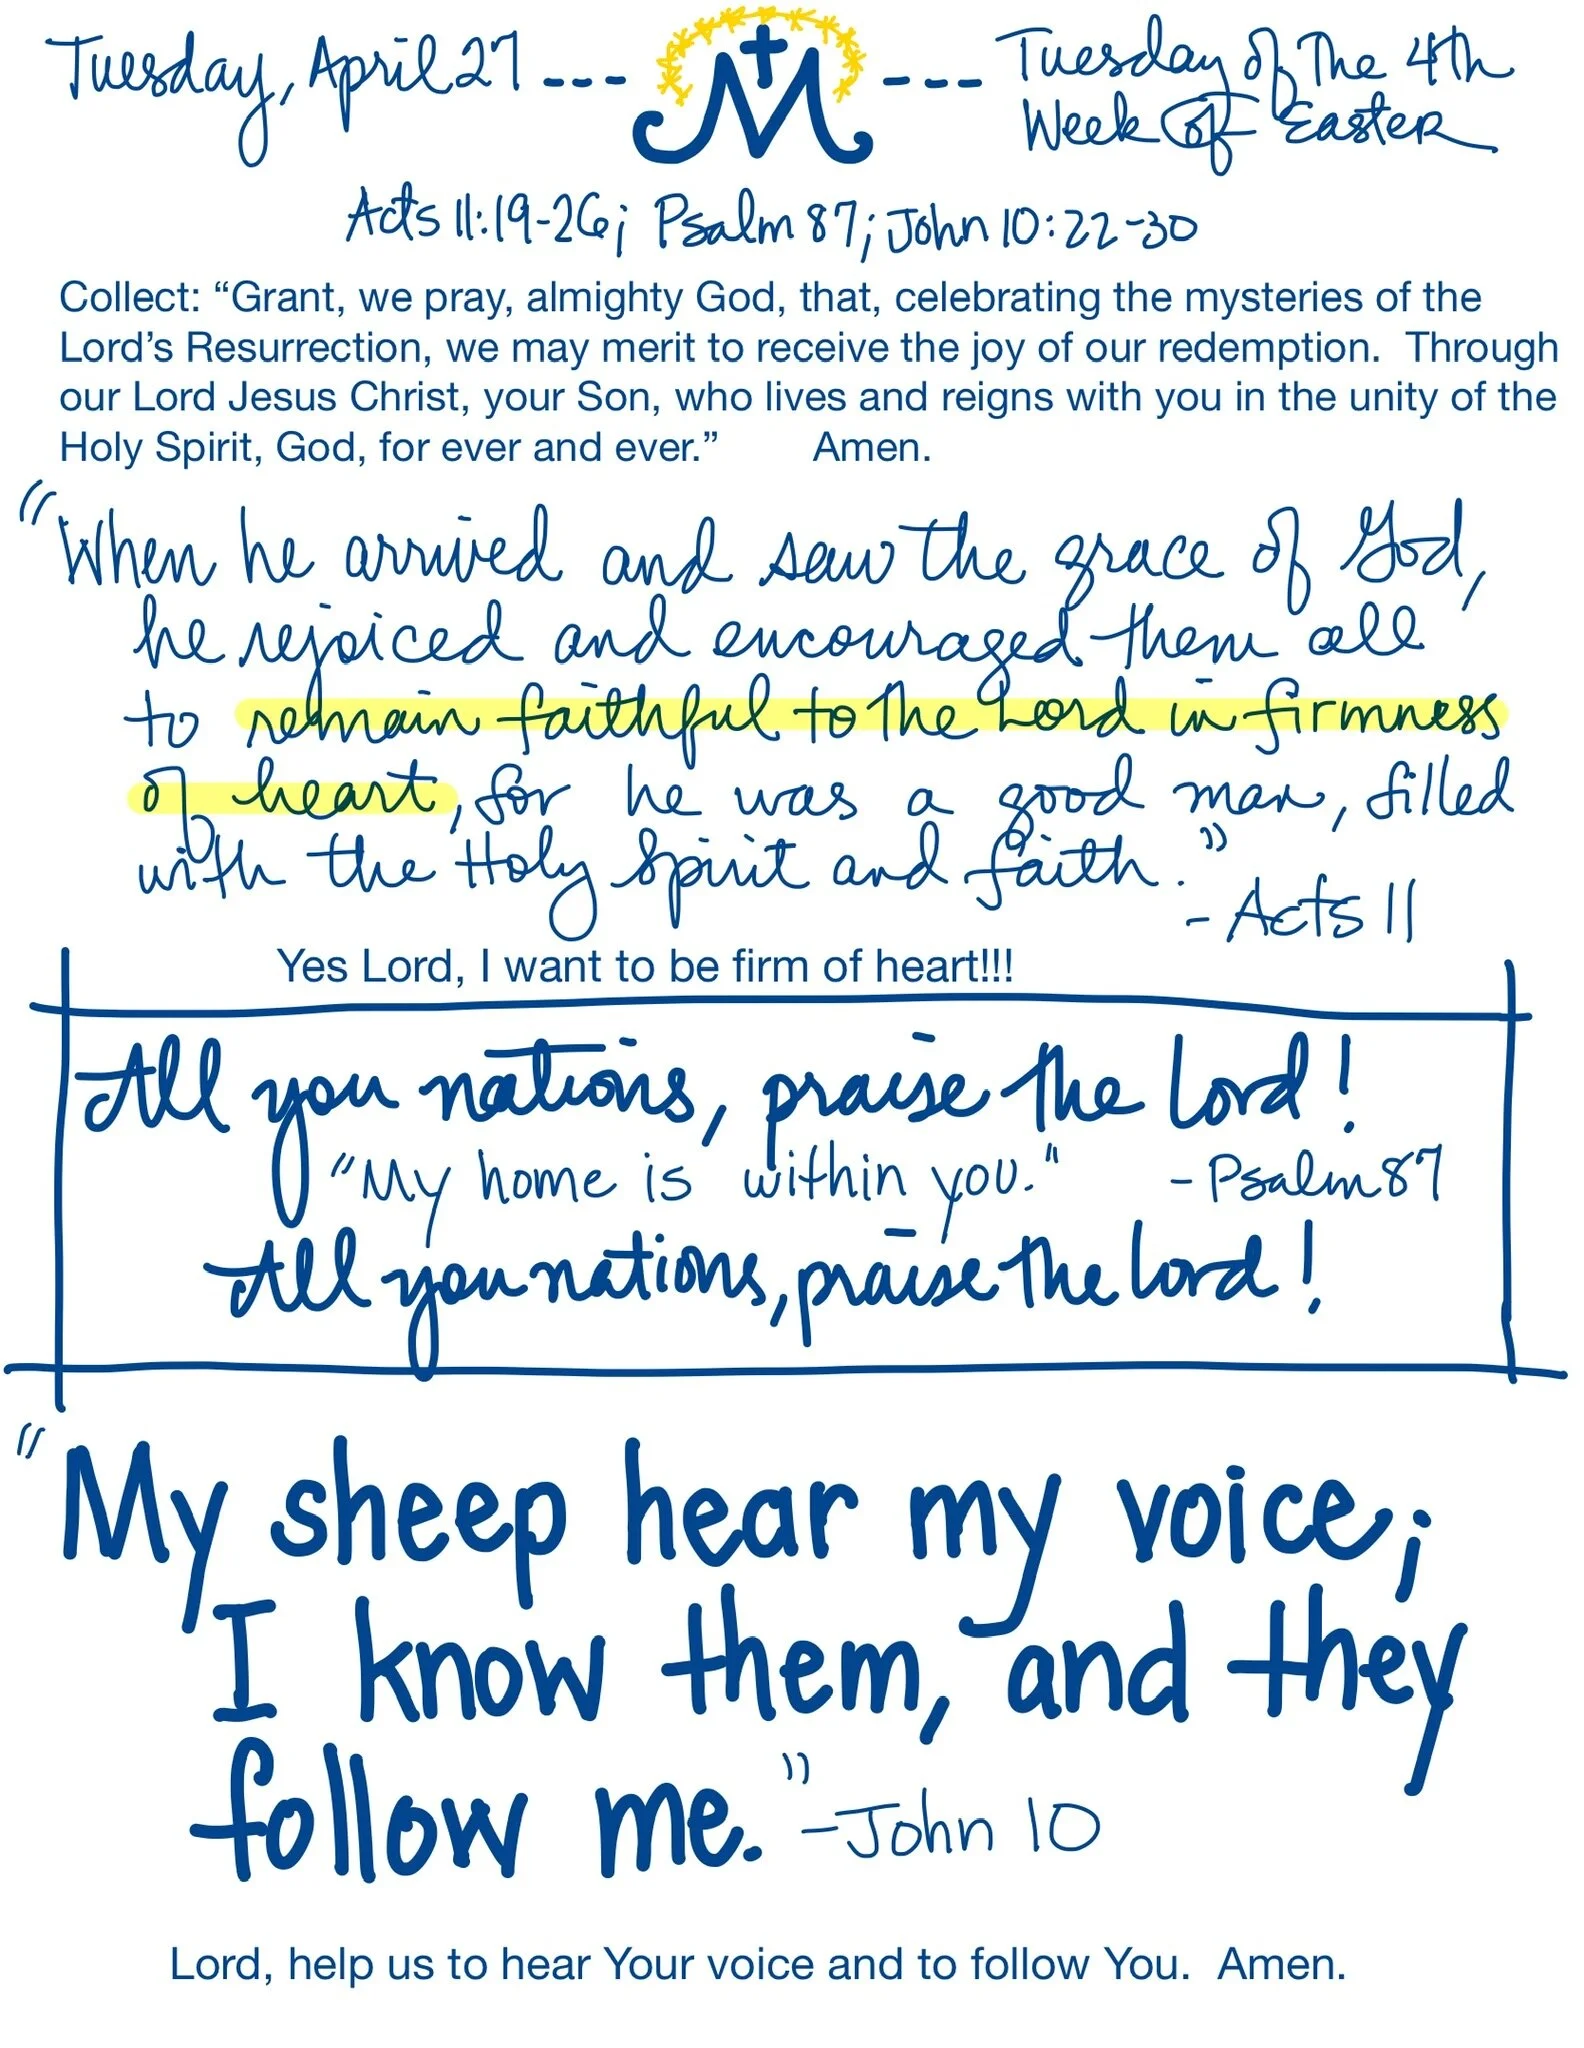 Tuesday, April 27 --- M --- Tuesday of The 4th
Week of Easter
Acts 11:19-26; Psalm 87; John 10:22-30
Collect: “Grant, we pray, almighty God, that, celebrating the mysteries of the
Lord’s Resurrection, we may merit to receive the joy of our redemption.  Through
our Lord Jesus Christ, your Son, who lives and reigns with you in the unity of the
Holy Spirit, God, for ever and ever.”  Amen.
“When he arrived and saw the grace of God,
he rejoiced and encouraged them all
to remain faithful to the Lord in firmness
of heart, for he was a good man, filled
with the Holy Spirit and faith.”
- Acts 11
Yes Lord, I want to be firm of heart!!!
All you nations, praise the Lord!
“My home is within you.” - Psalm 87
All you nations, praise the Lord!
“My sheep hear my voice;
I know them, and they
follow me.” - John 10
Lord, help us to hear Your voice and to follow You.  Amen.